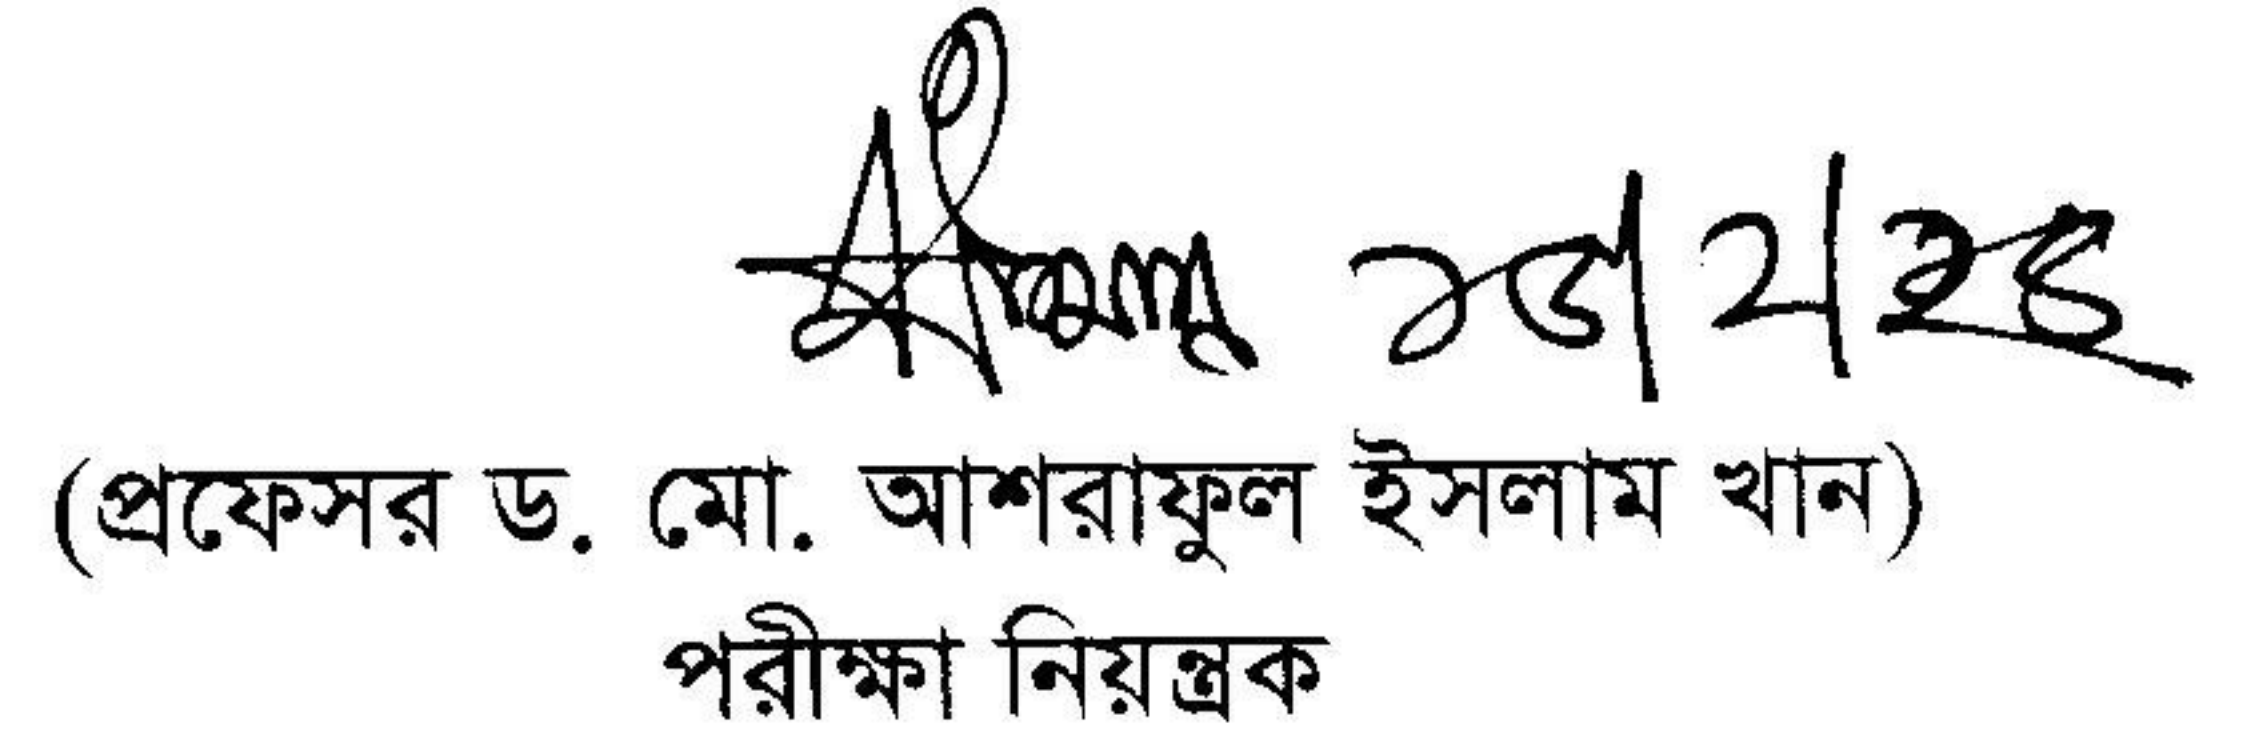 (প্রফেসর ড. মো. আশরাফুল ইসলাম খান)
পরীক্ষা নিয়ন্ত্রক